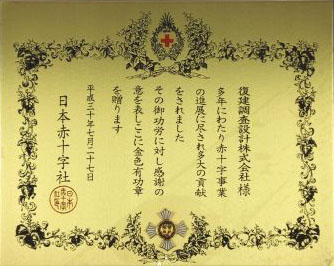 復建調査設計株式会社 様
多年にわたり赤十字事業
の進展に尽され多大の貢献
をされました
その御功労に対し感謝の
意を表しここに金色有功章
を贈ります
平成三十年七月二十七日
日本赤十字社